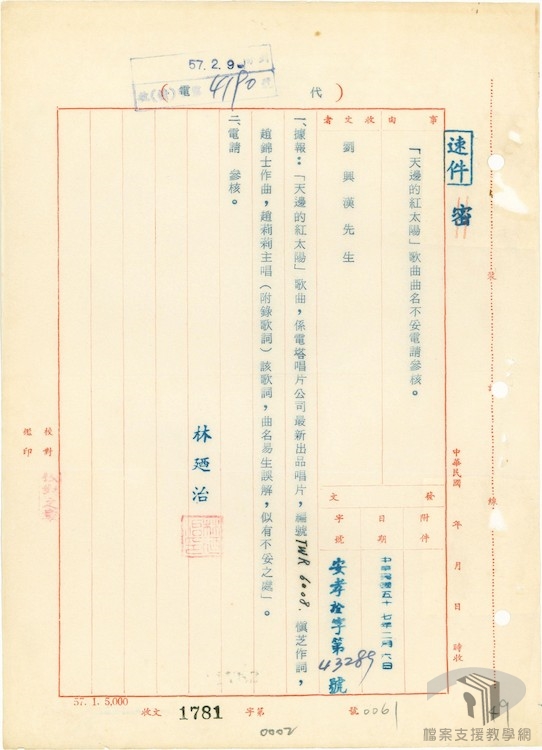 57.2.9
電 4190
(代)
速件
密
事由
收文者
「天邊的紅太陽」歌曲曲名不妥電請參核。
劉興漢先生
一、據報：「天邊的紅太陽」歌曲，係電塔唱片公司最新出品唱片，編號TWR 6008. 慎芝作詞，
趙錦士作曲，趙莉莉主唱（附錄歌詞）該歌詞，曲名易生誤解，似有不妥之處」。
二、電請 參核。
林廼治
發文
附件
日期
字號
中華民國五十七年二月六日
安孝栓字第43289號
中華民國 年 月 日 時收
裝
訂
線
校對
監印
57. 1. 5,000
收文 1781 字第 號
0061
0002
49
檔案支援教學網